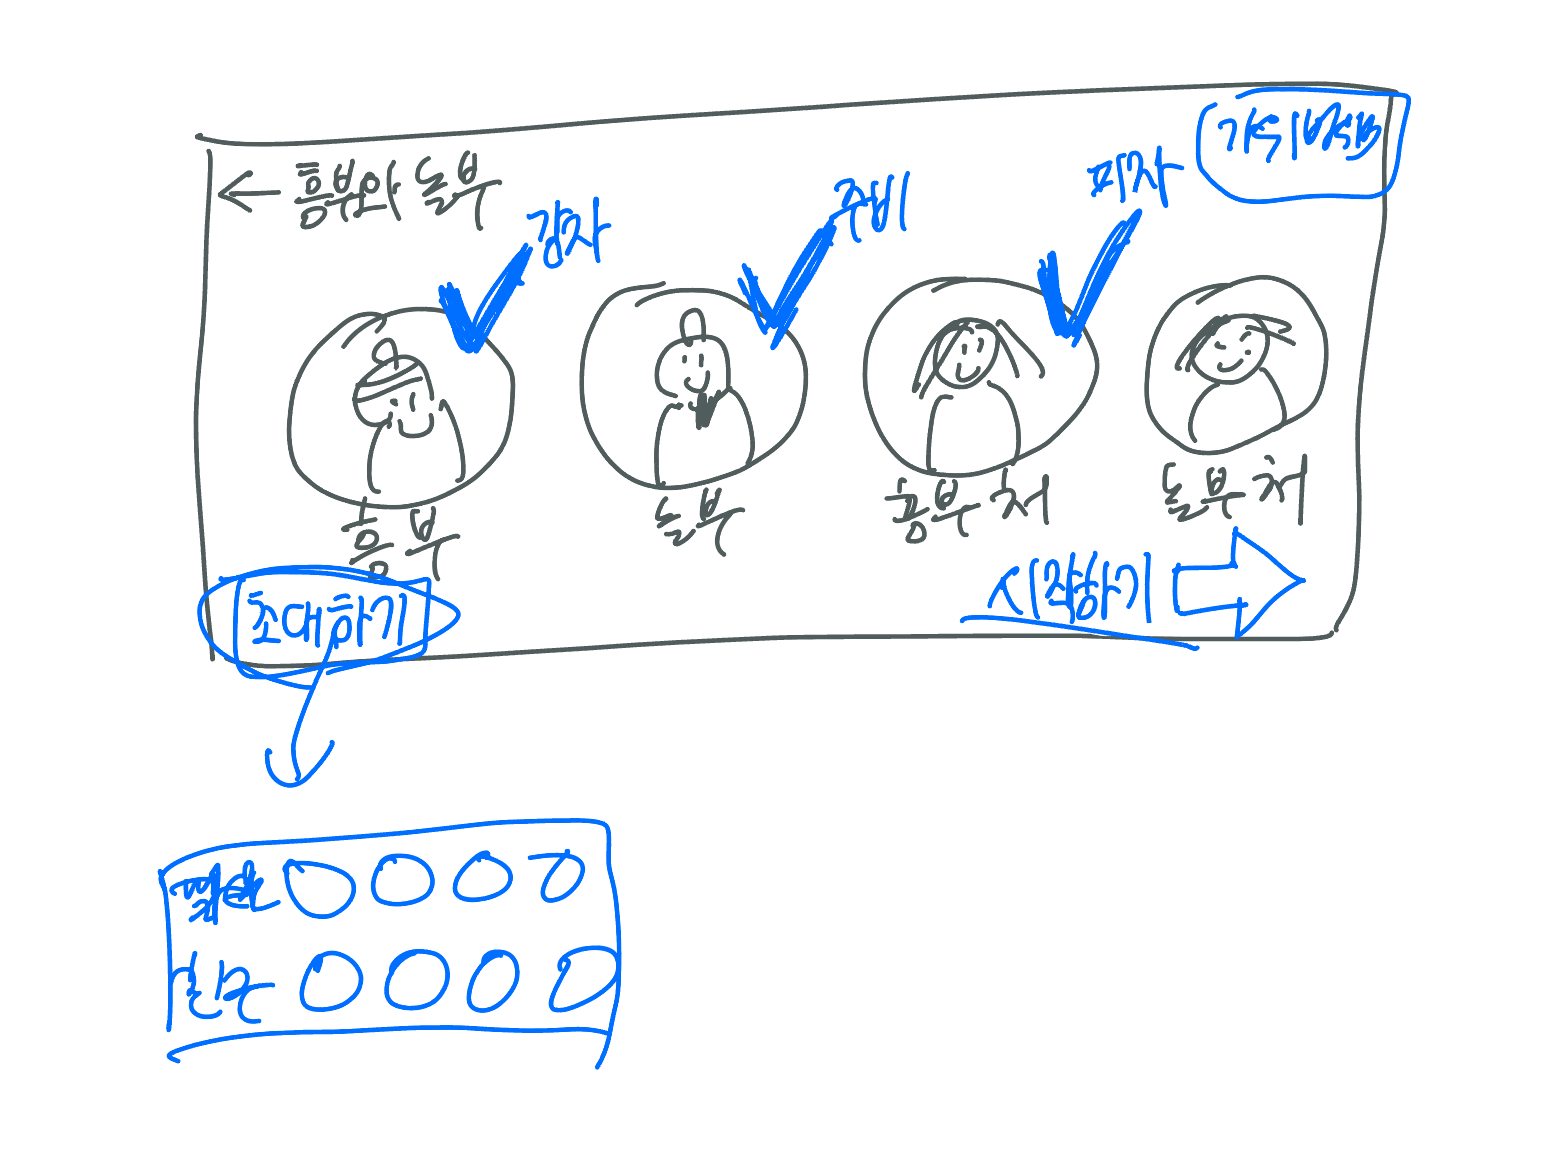 흥부와 놀부
감자
주비
피자
흥부
놀부
흥부 처
놀부 처
초대하기
시작하기
친구